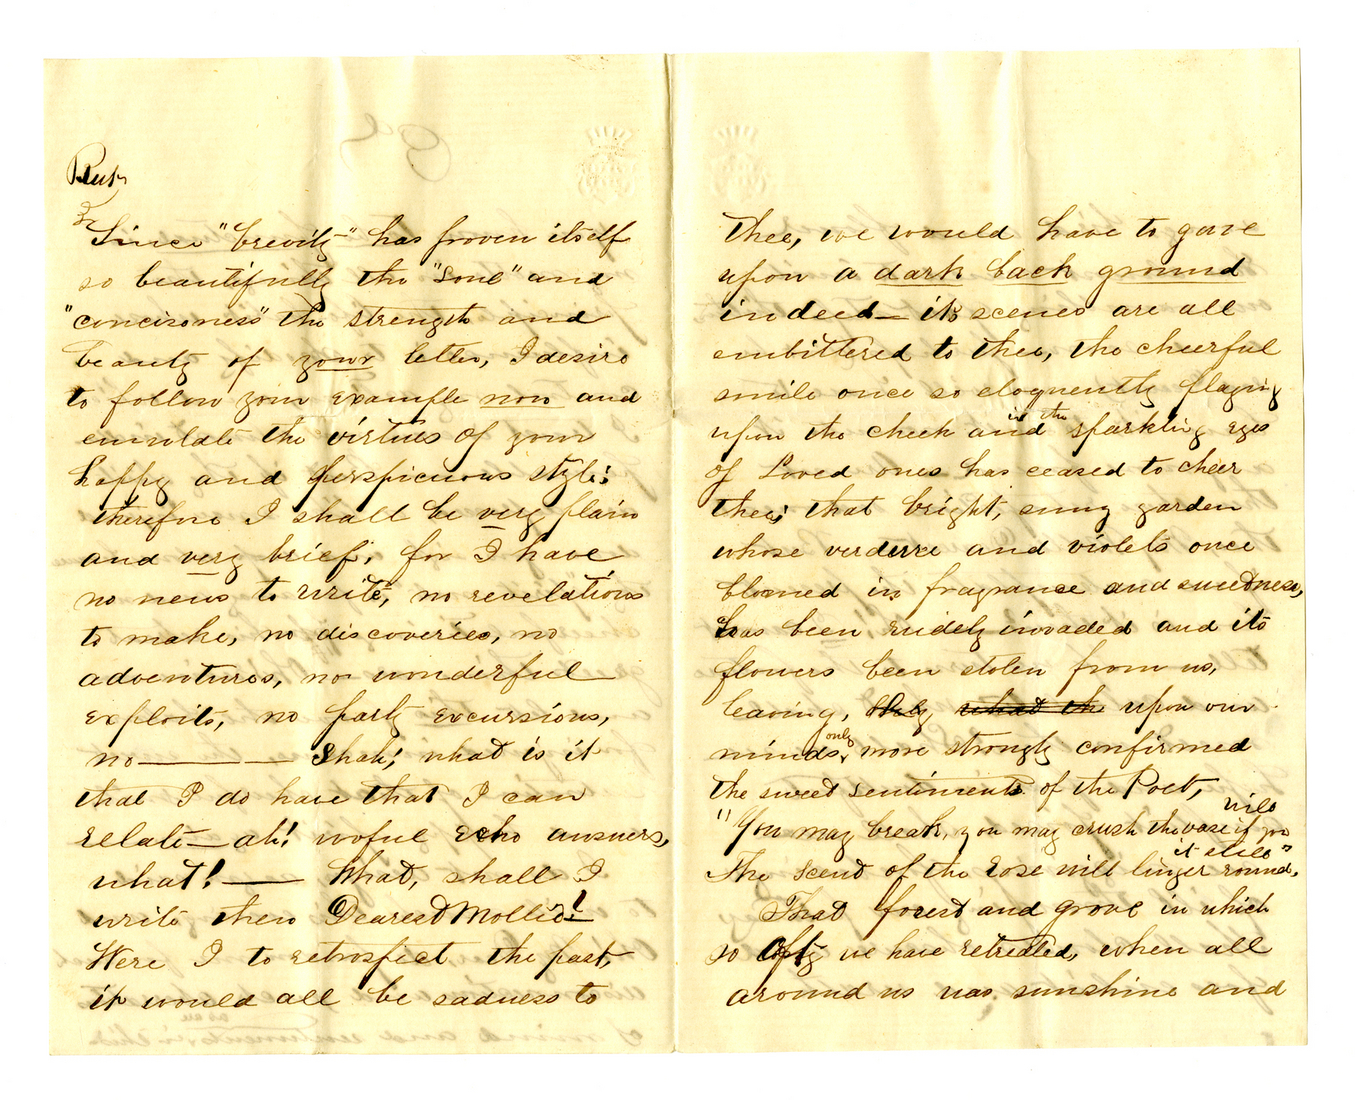 Since "brevity" has proven itself
so beautifully the "soul" and
"conciseness" the strength and
beauty of your letter, I desire
to follow your example now and
emulate the virtues of your
happy and perspicuous style;
therefore I shall be very plain
and very brief; for I have
no news to write, no revelations
to make, no discoveries, no
adventures, no wonderful
exploits, no party excursions,
no ——— Shah; what is it
that I do have that I can
relate — ah! woful echo answers,
what! — What, shall I
write then Dearest Mollie!
Were I to retrospect the past,
it would all be sadness to
thee, we would have to gaze
upon a dark back ground
indeed — its scenes are all
embittered to thee, the cheerful
smile once so eloquently playing
upon the cheek and in the sparkling eyes
of Loved ones has ceased to cheer
thee; that bright, sunny garden
whose verdure and violets once
bloomed in fragrance and sweetness,
has been rudely invaded and its
flowers been stolen from us,
leaving, only what th upon our
minds, only more strongly confirmed
the sweet sentiments of the Poet,
"You may break, you may crush the vase if you will
The scent of the rose will linger round it still"
That forest and grove in which
so ofty we have retreated, when all
around us was sunshine and